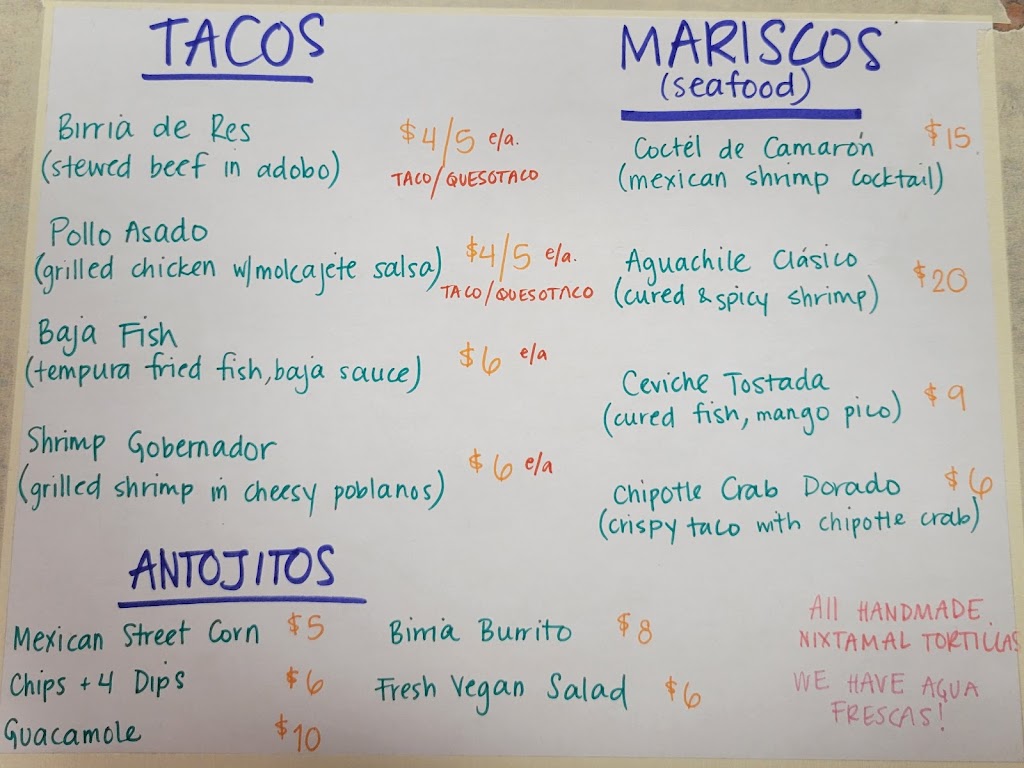 TACOS
Birria de Res $4/5 e/a.
(stewed beef in adobo) TACO/QUESOTACO
Pollo Asado
(grilled chicken w/molcajete salsa) $4/5 e/a.
TACO/QUESOTACO
Baja Fish
(tempura fried fish, baja sauce) $6 e/a
Shrimp Gobernador
(grilled shrimp in cheesy poblanos) $6 e/a
MARISCOS
(seafood)
Coctél de Camarón $15
(mexican shrimp cocktail)
Aguachile Clásico
(cured & spicy shrimp) $20
Ceviche Tostada
(cured fish, mango pico) $9
Chipotle Crab Dorado $6
(crispy taco with chipotle crab)
ANTOJITOS
Mexican Street Corn $5
Chips + 4 Dips $6
Guacamole $10
Birria Burrito $8
Fresh Vegan Salad $6
All HANDMADE
NIXTAMAL TORTILLAS
WE HAVE AGUA
FRESCAS!